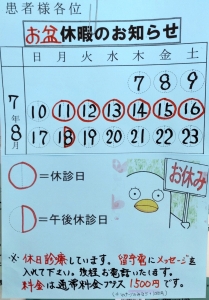 患者様各位
お盆休暇のお知らせ
7年8月
日 月 火 水 木 金 土
7 8 9
10 11 12 13 14 15 16
17 18 19 20 21 22 23
=休診日
=午後休診日
お休み
※休日診療しています。留守電にメッセージを
入れて下さい。後程お電話いたします。
料金は通常料金プラス1500円です。